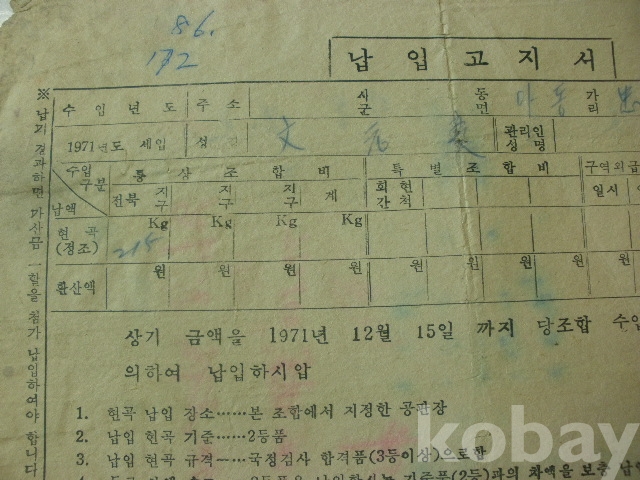 86.
172
납입고지서
수입년도 주소 시군 동면 다동 가리
1971년도 세입 성 文元 관리인 성명
수입구분 통상조합비 특별조합비 구역외급
납액 전북 지구 지구 지구 계 회현 간척 일시
현곡 (정조) 215 Kg Kg Kg Kg
환산액 원 원 원 원 원 원 원 원
상기 금액을 1971년 12월 15일 까지 당조합 수입
의하여 납입하시압
1. 현곡 납입 장소……본 조합에서 지정한 공판장
2. 납입 현곡 기준……2등품
3. 납입 현곡 규격……국정검사 합격품(3등이상)으로함
※ 납기 경과하면 가산금 일할을 첨가 납입하여야 합니다
kobay